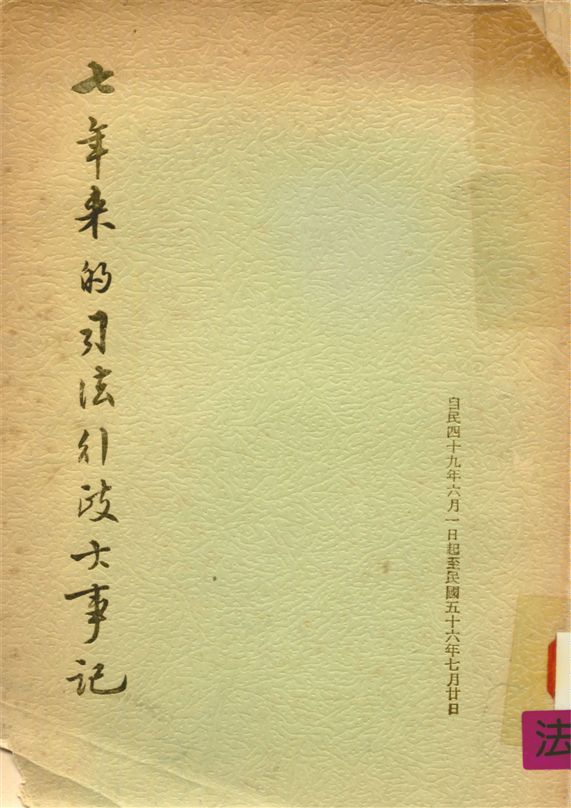 自民四十九年六月一日起至民國五十六年七月廿日
七年来的司法行政大事记
法